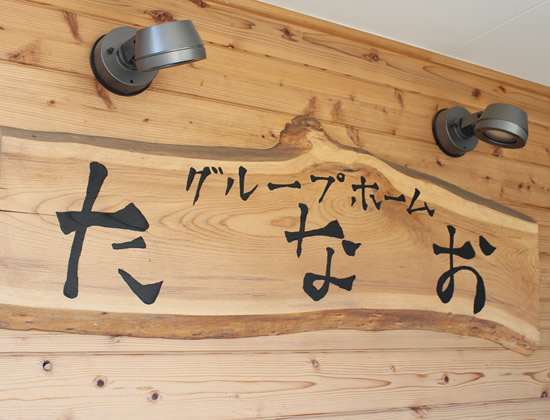 グループホーム
たなお